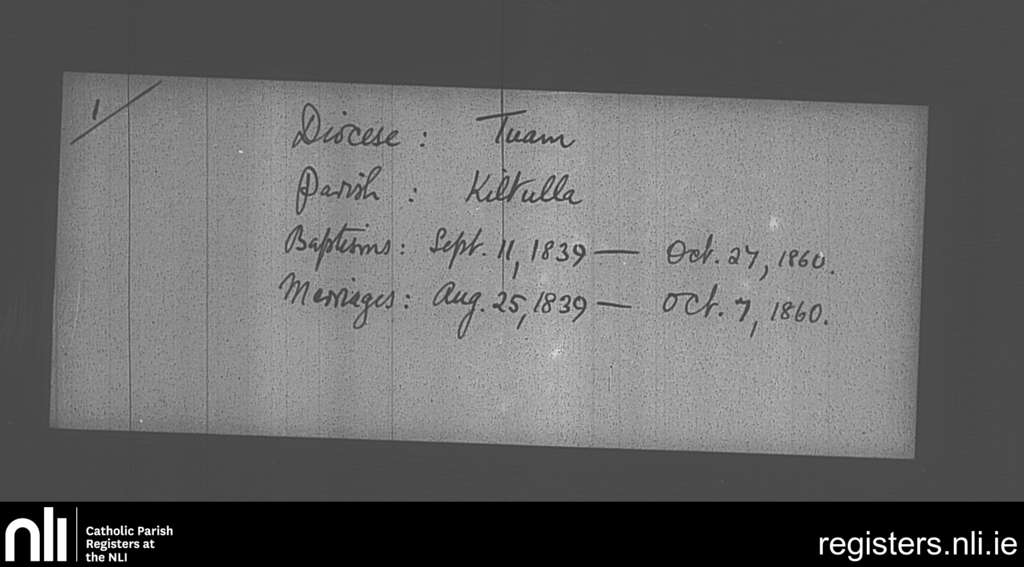 1/
Diocese : Tuam
Parish : Kiltulla
Baptisms : Sept. 11, 1839 — Oct. 27, 1860.
Marriages : Aug. 25, 1839 — Oct. 7, 1860.
nli
Catholic Parish
Registers at
the NLI
registers.nli.ie